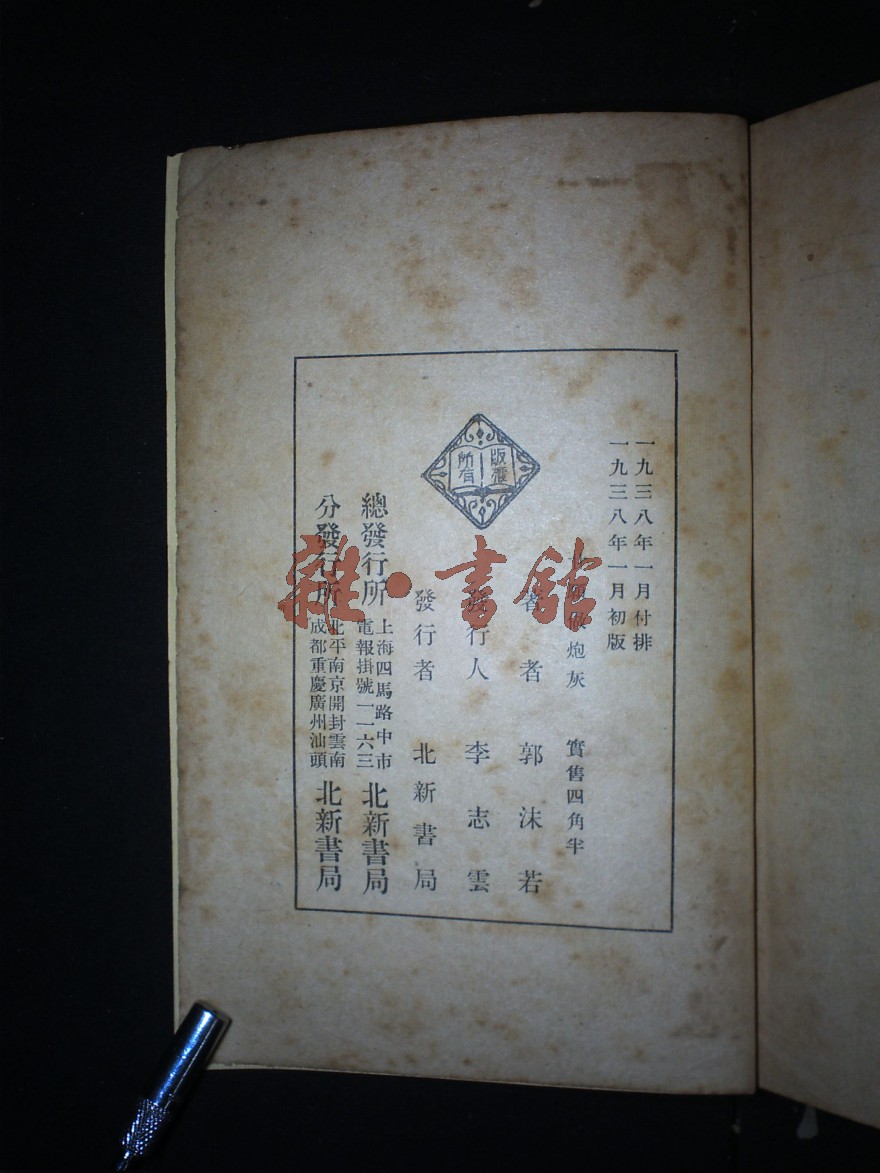 一九三八年一月付排
一九三八年一月初版
甘願做炮灰 實售四角半
著者 郭沫若
發行人 李志雲
發行者 北新書局
版權
所有
總發行所 上海四馬路中市
電報掛號一一六三 北新書局
分發行所 北平南京開封雲南
成都重慶廣州汕頭 北新書局
雜·書館